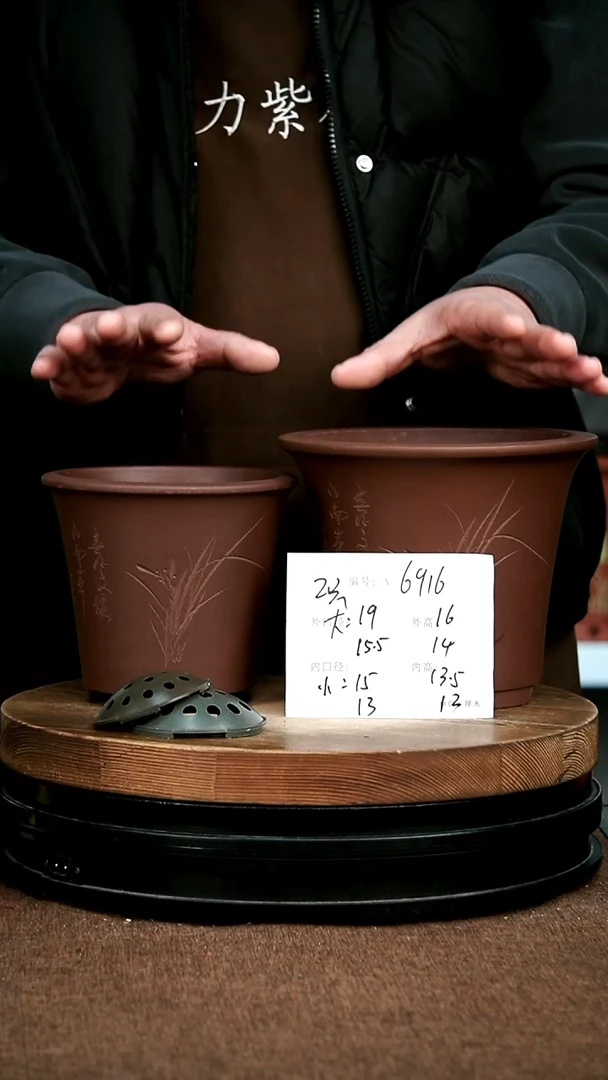 力紫
2号 编号: A 6916
大: 19 外高 16
15.5 14
内口径: 内高 13.5
小: 15
13 12 厘米